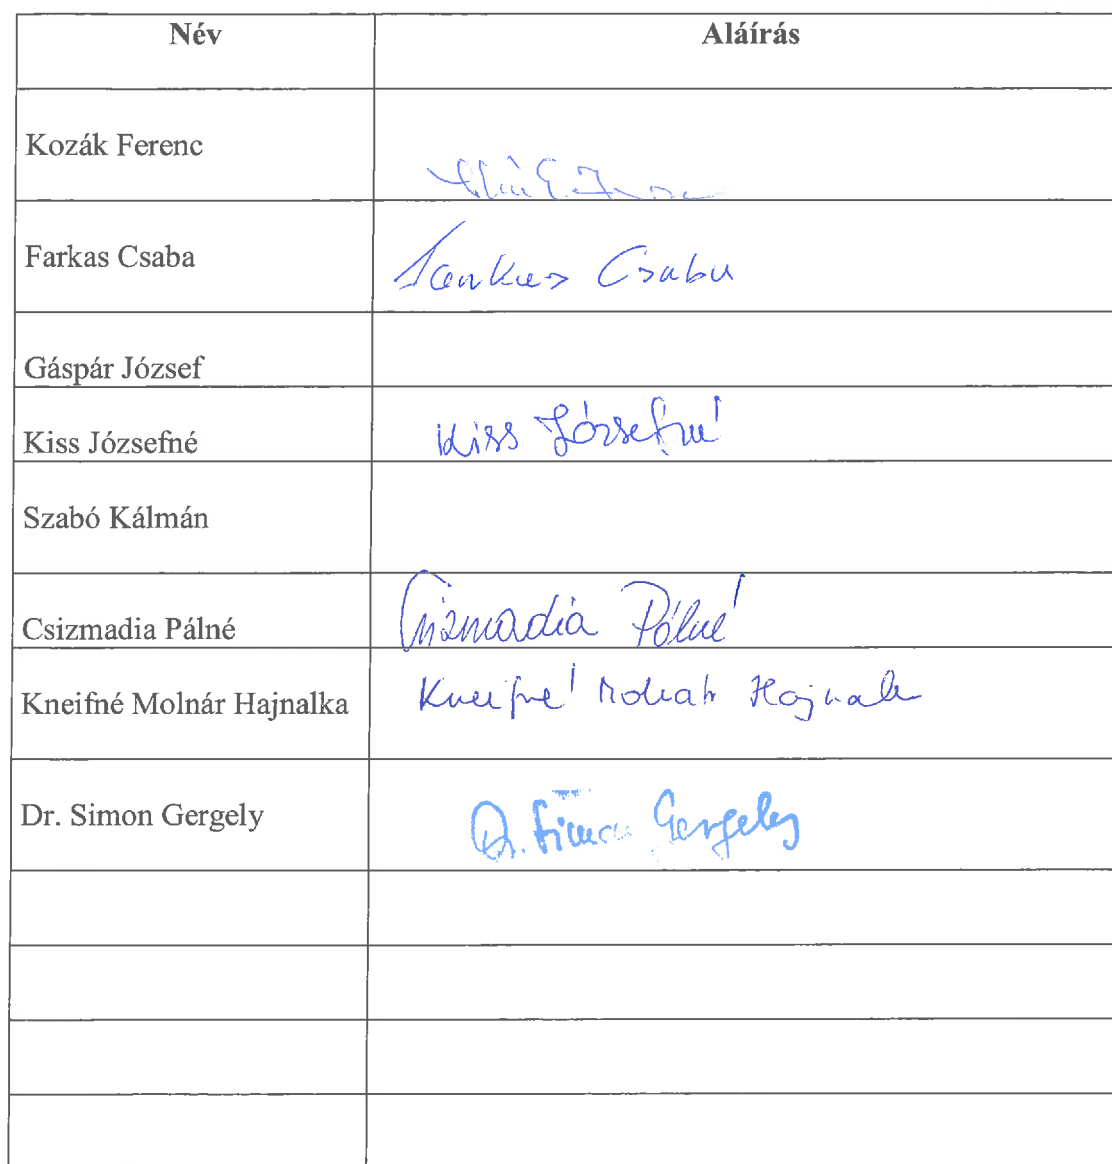 Név Aláírás
Kozák Ferenc
Farkas Csaba Farkas Csaba
Gáspár József
Kiss Józsefné Kiss Józsefné
Szabó Kálmán
Csizmadia Pálné Csizmadia Pálné
Kneifné Molnár Hajnalka Kneifné Molnár Hajnalka
Dr. Simon Gergely Dr. Simon Gergely